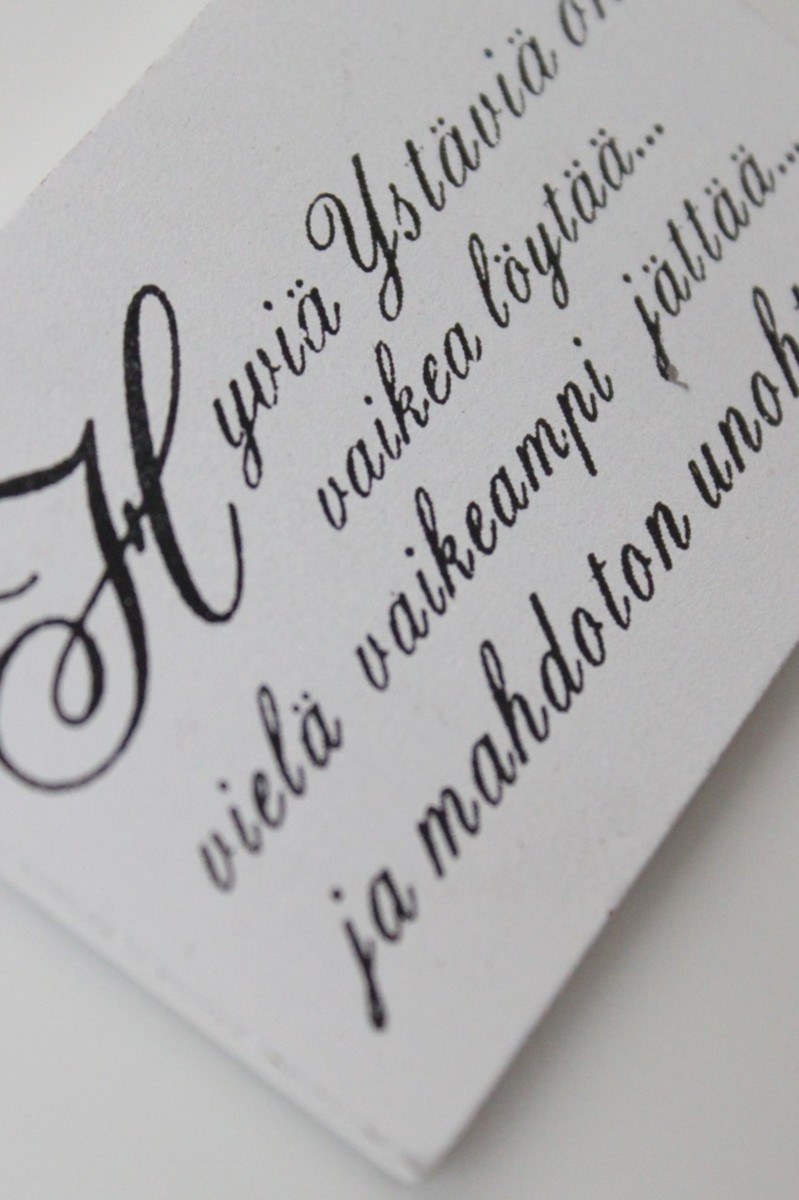 Hyviä Ystäviä on
vaikea löytää...
vielä vaikeampi jättää...
ja mahdoton